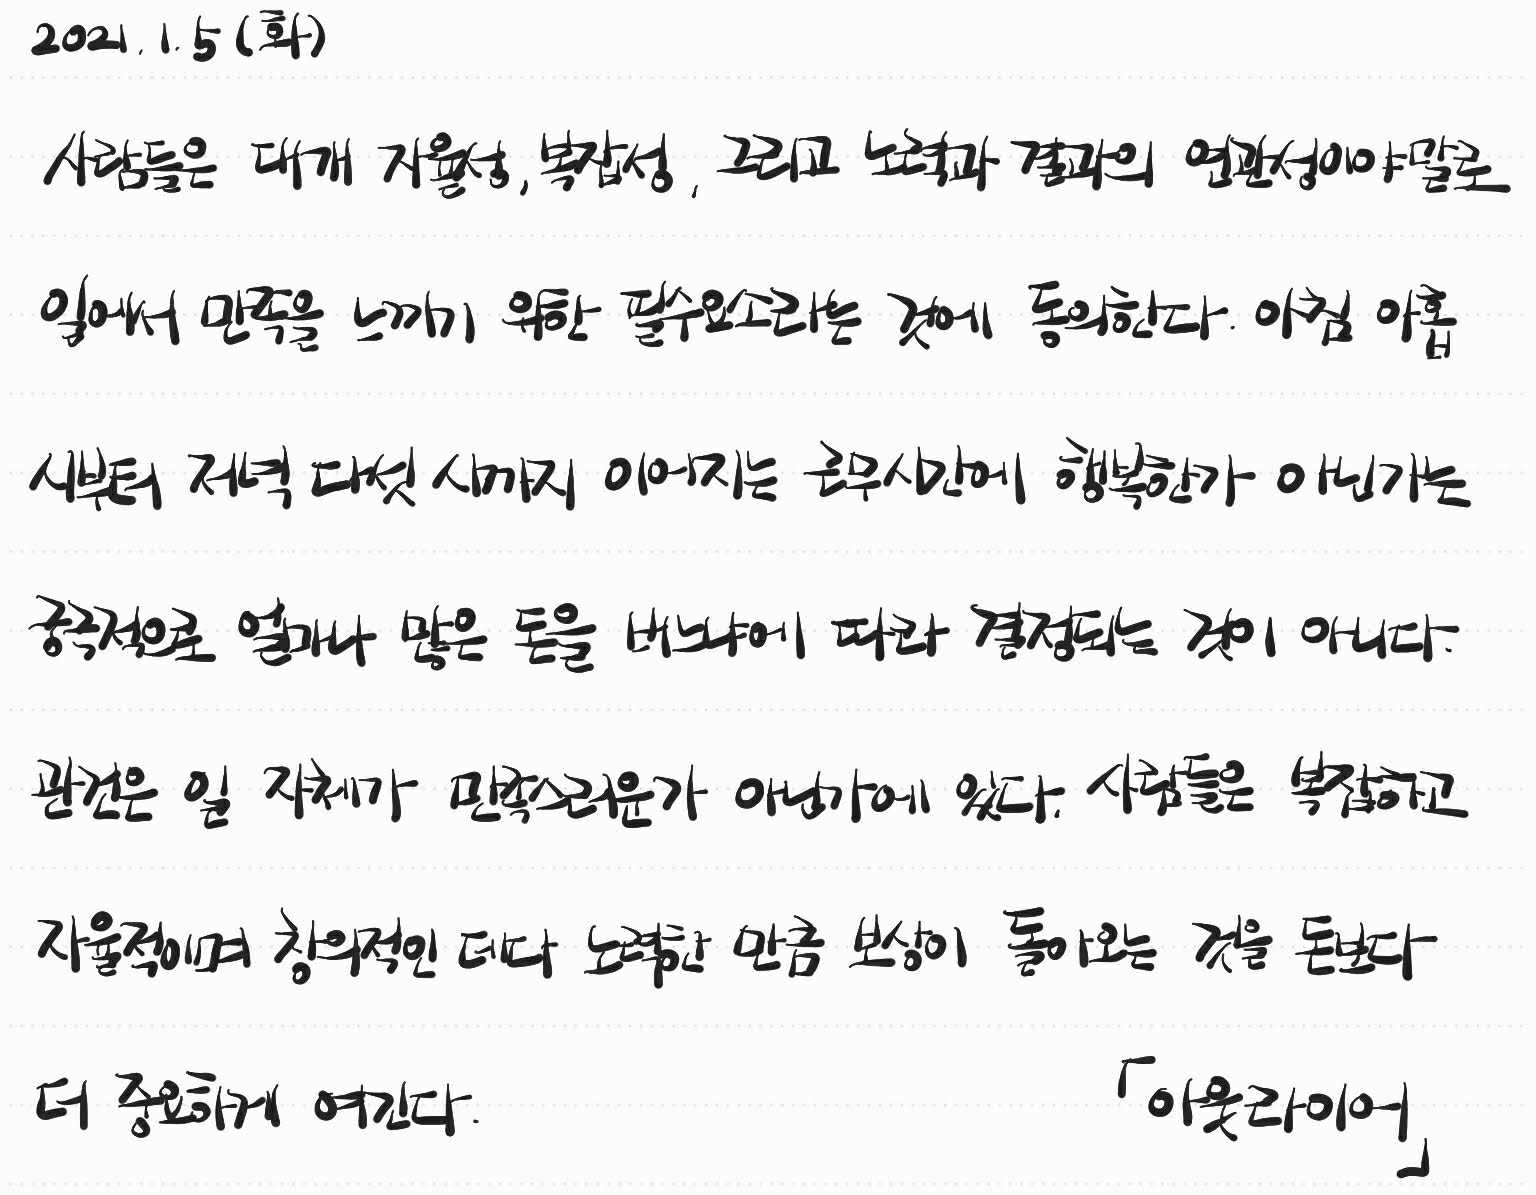 2021. 1. 5 (화)
사람들은 대개 자율성, 복잡성, 그리고 노력과 결과의 연관성이야말로
일에서 만족을 느끼기 위한 필수요소라는 것에 동의한다. 아침 아홉
시부터 저녁 다섯 시까지 이어지는 근무시간에 행복한가 아닌가는
궁극적으로 얼마나 많은 돈을 버느냐에 따라 결정되는 것이 아니다.
관건은 일 자체가 만족스러운가 아닌가에 있다. 사람들은 복잡하고
자율적이며 창의적인 데다 노력한 만큼 보상이 돌아오는 것을 돈보다
더 중요하게 여긴다. 「아웃라이어」